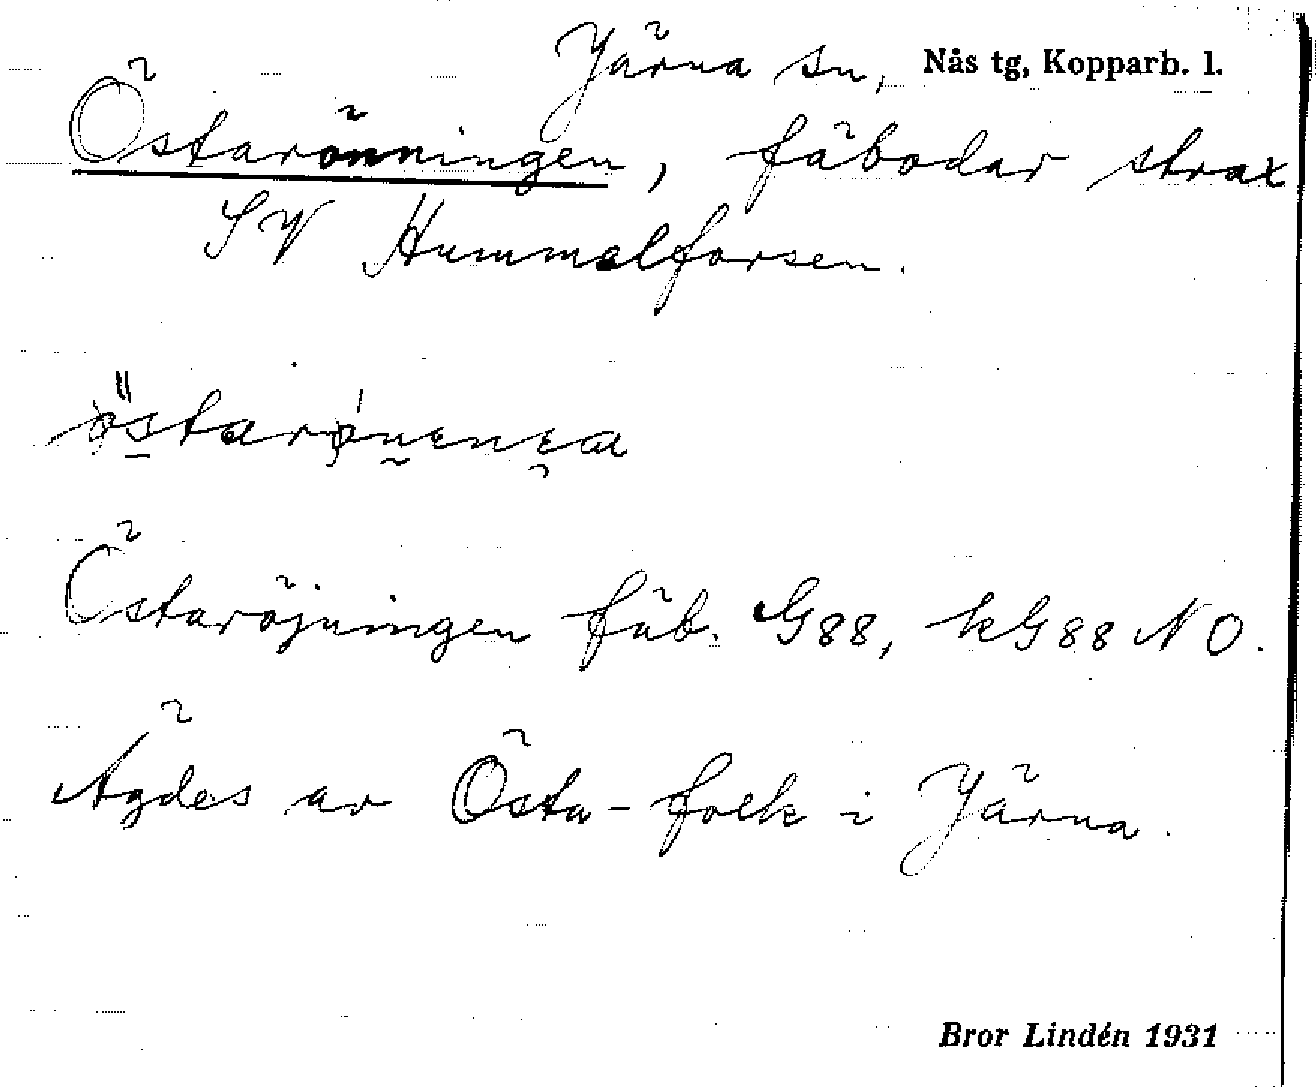 Järna sn, Nås tg, Kopparb. l.
Östarönningen, fäbodar strax
SV Hummelforsen.
Östaröjningen fäb. G88, kG88 NO.
Ägdes av Östa-folk i Järna.
Bror Lindén 1931